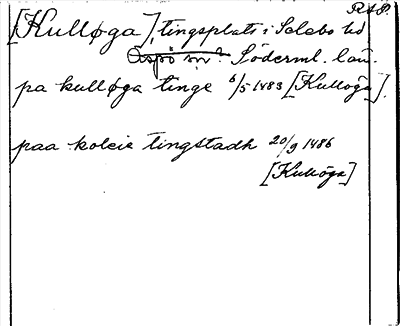 RAP.
[Kulløga], tingsplats i Selebo hd
Åspö sn? Söderml. län.
pa kulløga tinge 6/5 1483 [Kullöga].
paa koleie tingstadh 20/9 1486
[Kullöga]